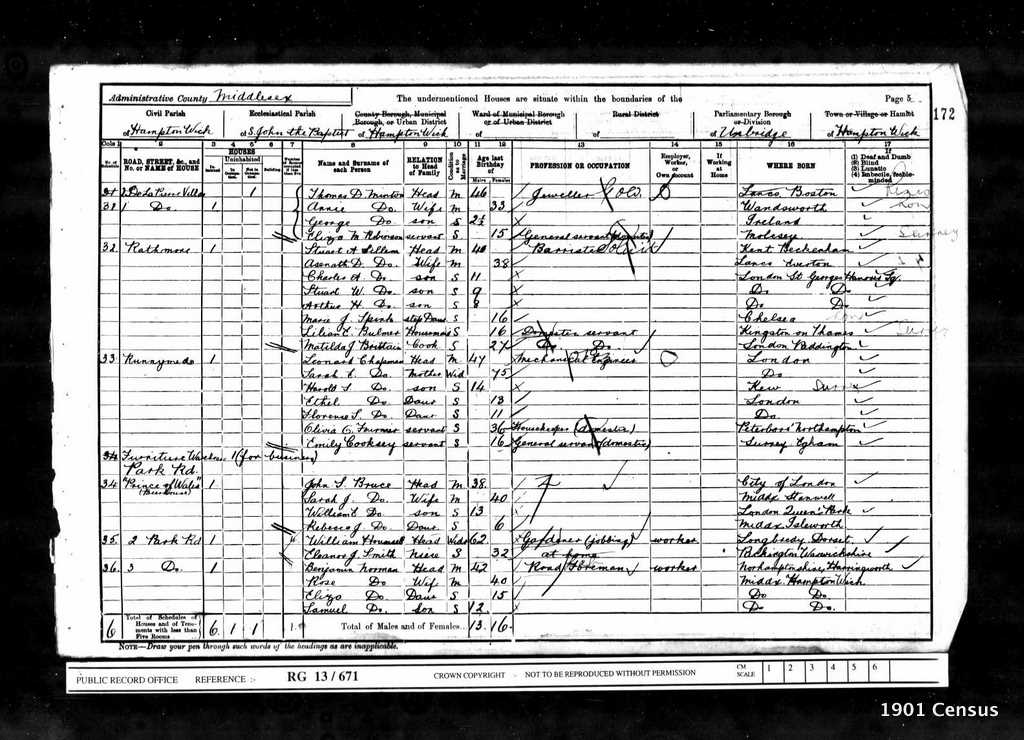 Administrative County Middlesex
The undermentioned Houses are situate within the boundaries of the
Page 5
172
Civil Parish
of Hampton Wick
Ecclesiastical Parish
of S. John the Baptist
County Borough, Municipal Borough, or Urban District
of Hampton Wick
Ward of Municipal Borough or of Urban District
of
Rural District
of
Parliamentary Borough or Division
of Uxbridge
Town or Village or Hamlet
of Hampton Wick
Cols 1 2 3 4 5 6 7 8 9 10 11 12 13 14 15 16 17
No. of ROAD, STREET, &c., and No. or NAME of HOUSE
HOUSES
Inhabited
Uninhabited
Name and Surname of each Person
RELATION to Head of Family
Condition as to Marriage
Age last Birthday of
Males Females
PROFESSION OR OCCUPATION
Employer, Worker, or Own account
If Working at Home
WHERE BORN
If (1) Deaf and Dumb (2) Blind (3) Lunatic (4) Imbecile, feeble-minded
1 Thomas D. Minton Head M 46 Jeweller Lancs Boston
1 Do. 1 Annie Do. Wife M 33 Wandsworth
George Do. son S Ireland
Eliza M Robinson servant S 15 General servant (domestic) Molesey
32 Rathmore 1 Stuart A Sillem Head M 40 Barrister Kent Beckenham
Asenath D. Do. Wife M 38 Lancs Everton
Charles A Do. son S 11 London St Georges Hanover Sq.
Stuart W. Do. son S 9 Do Do
Arthur H. Do. son S 8 Do Do
Marie J. step Daur S 16 Chelsea
Lilian E. Bulmer Housemaid S 16 Domestic servant Kingston on Thames
Matilda J Brittain Cook S 27 Do. Do. London Paddington
33 Runnymede 1 Leonard Chapman Head M 47 Mechanical Engineer London
Sarah E. Do. Mother Wid 75 Do
Harold L Do. son S 14 Kew Surrey
Ethel Do Daur S 13 London
Florence L. Do. Daur S 11 Do.
Olivia C. servant S 36 Housekeeper (domestic) Peterboro' Northampton
Emily Cooksey servant S 16 General servant (domestic) Surrey Egham
Furniture 1 (for business)
Park Rd.
34 "Prince of Wales" (Beerhouse) 1 John L. Bruce Head M 38 City of London
Sarah J. Do. Wife M 40 Middx Stanwell
William E Do. son S 13 London Queen's Park
Rebecca J. Do. Daur S 6 Middx Isleworth
35 2 Park Rd 1 William Hounsell Head Widr 62 Gardener (jobbing) worker Longbredy Dorset
Eleanor J. Smith Niece S 32 at home Warwickshire
36 3 Do. 1 Benjamin Norman Head M 42 Road Foreman worker Northamptonshire, Harringworth
Rose Do Wife M 40 Middx Hampton Wick
Eliza Do Daur S 15 Do Do
Samuel Do. Son S 12 Do Do.
6 Total of Schedules of Houses and of Tenements with less than Five Rooms 6 1 1 Total of Males and of Females... 13 16
NOTE—Draw your pen through such words of the headings as are inapplicable.
PUBLIC RECORD OFFICE REFERENCE :- RG 13/671 CROWN COPYRIGHT - NOT TO BE REPRODUCED WITHOUT PERMISSION CM SCALE 1 2 3 4 5 6
1901 Census